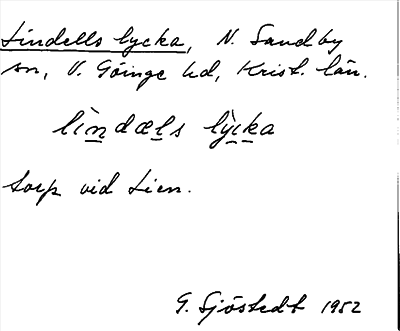 Lindells lycka, N. Sandby
sn, V. Göinge hd, Krist. län.
lìndæls lỳcka
torp vid Lien.
G. Sjöstedt 1952